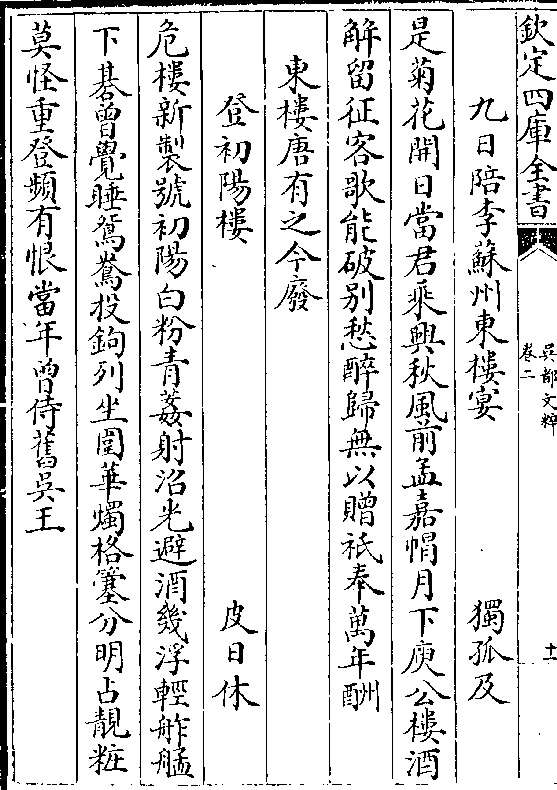 欽定四庫全書
吳都文粹
卷二
十二
九日陪李蘇州東樓宴 獨孤及
是菊花開日當君乘興秋風前孟嘉帽月下庾公樓酒
解留征客歌能破别愁醉歸無以贈祇奉萬年酬
東樓唐有之今廢
登初陽樓 皮日休
危樓新製號初陽白粉青葌射沼光避酒幾浮輕舴艋
下棊曾覺睡鴛鴦投鉤列坐圍華燭格簺分明占靚粧
莫怪重登頻有恨當年曽侍舊吳王